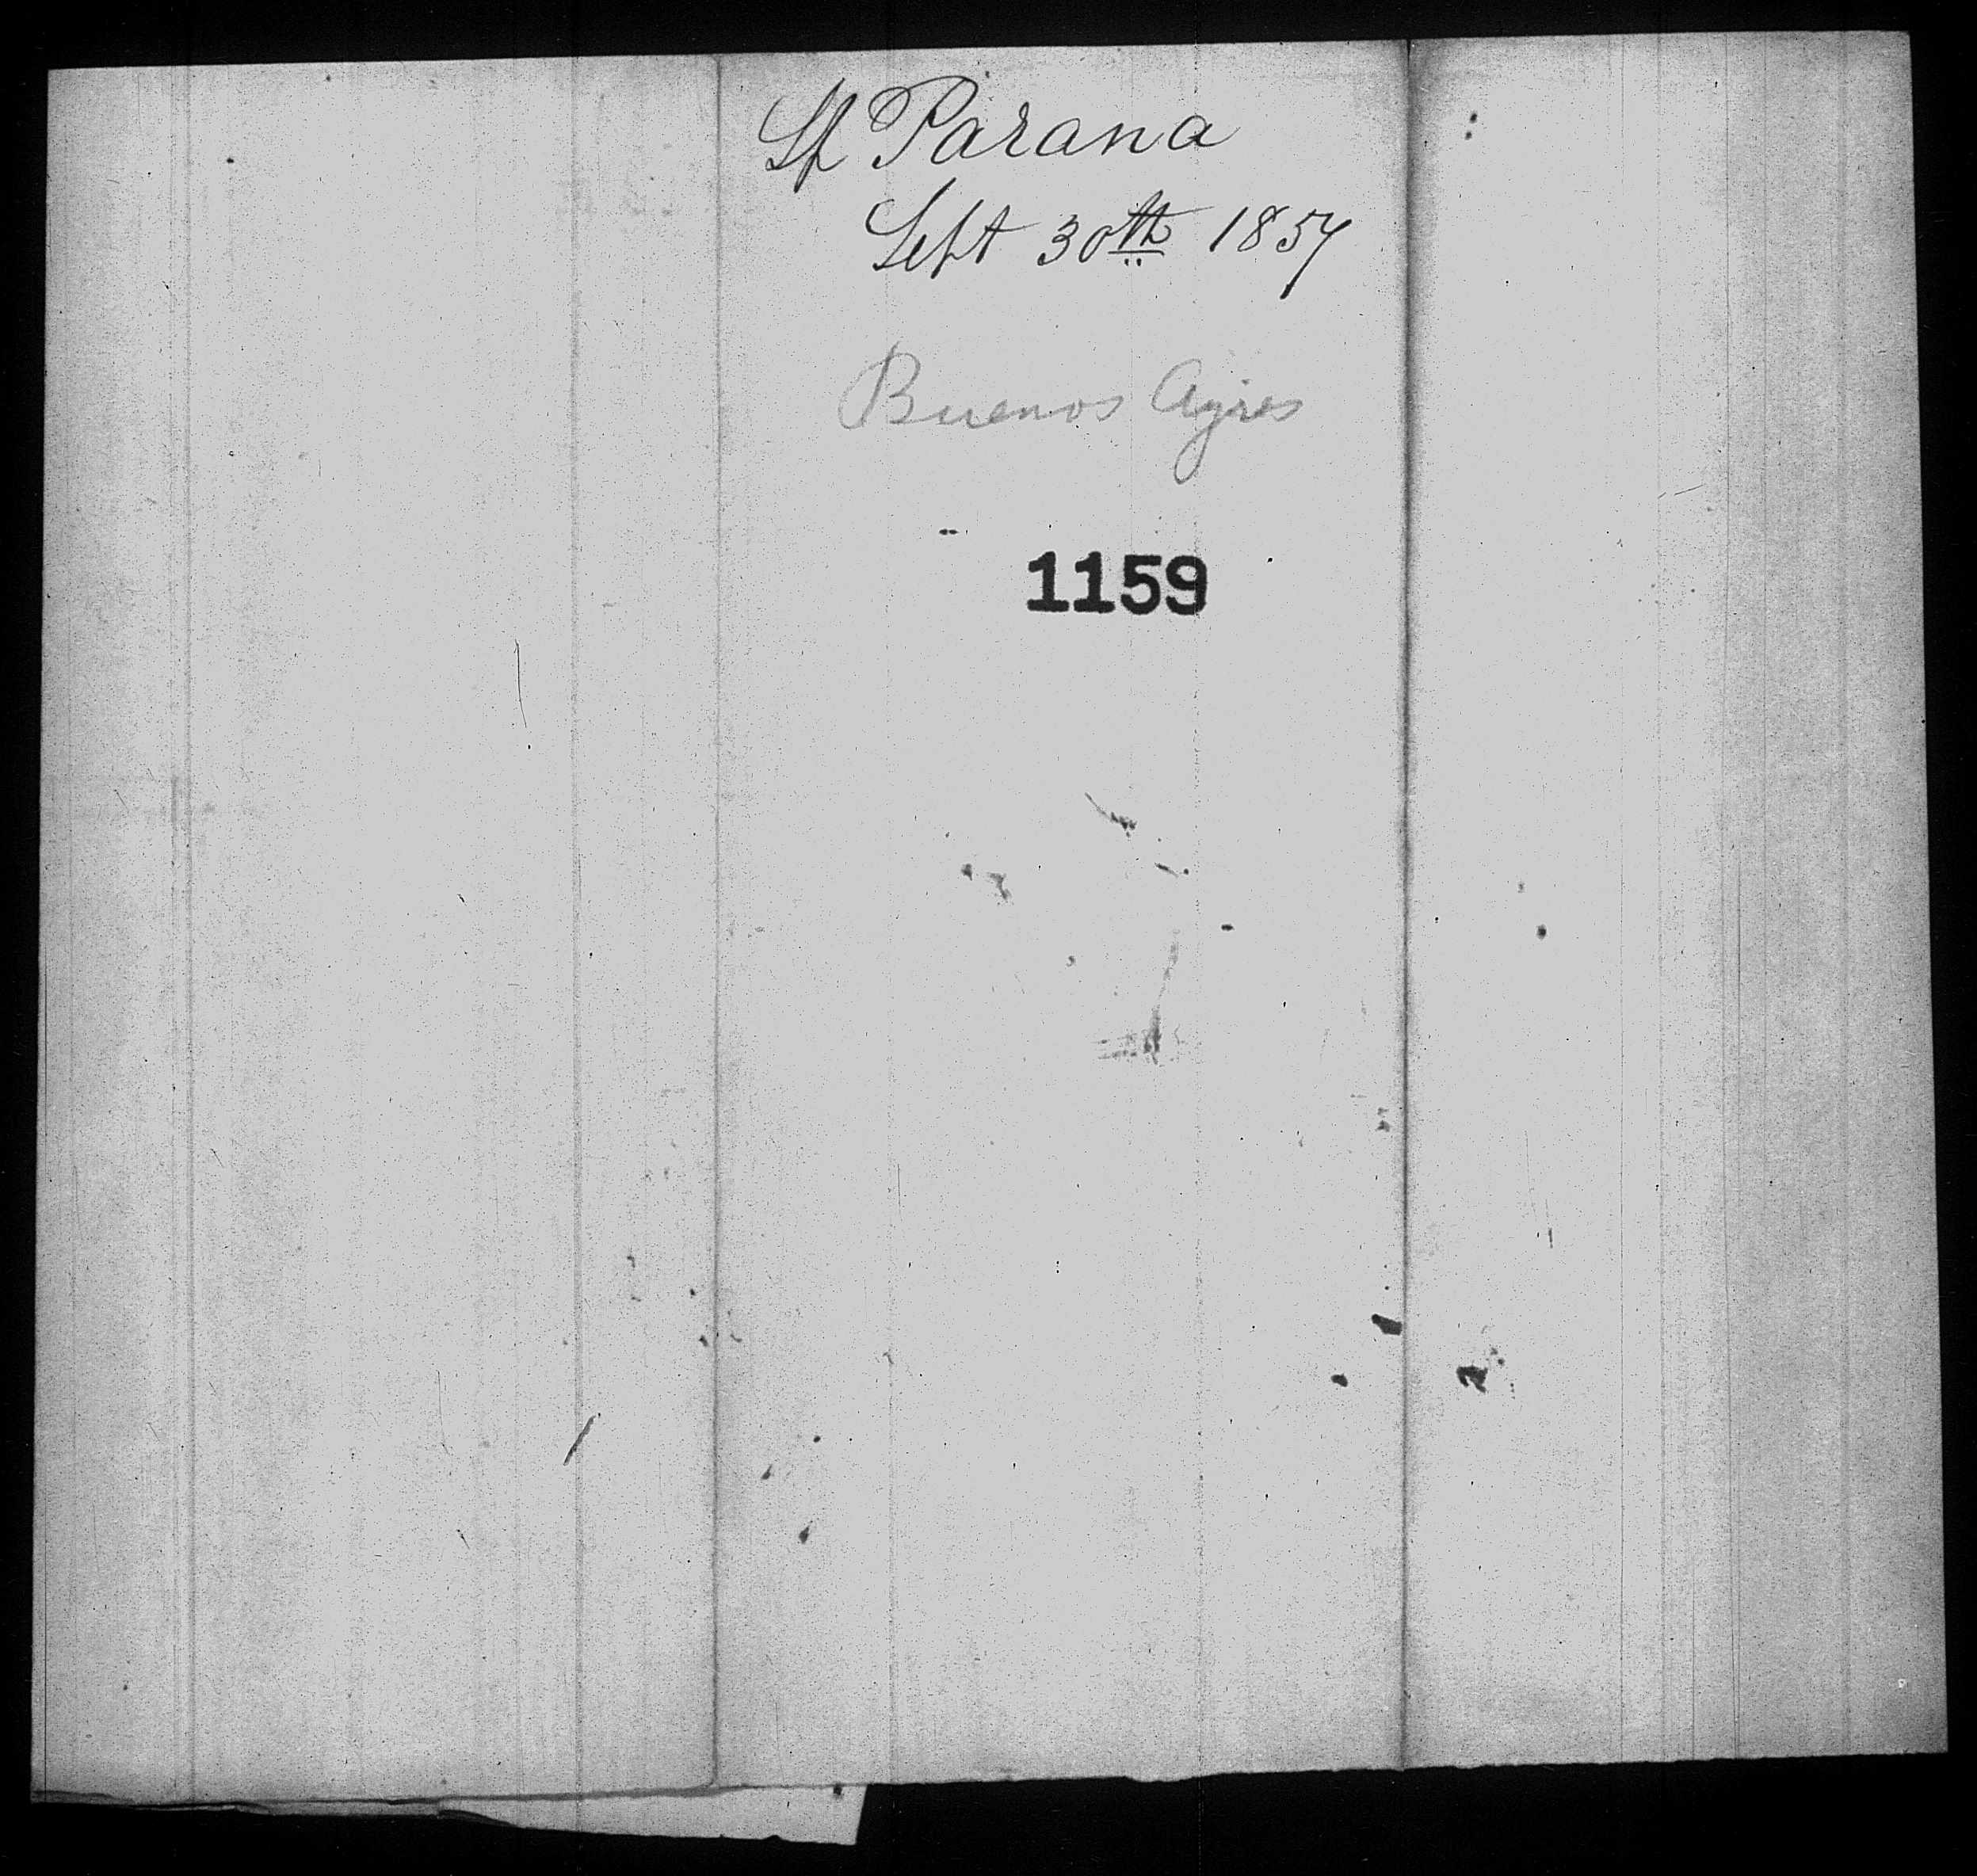 Sp Parana
Sept 30th 1857
Buenos Ayres
1159